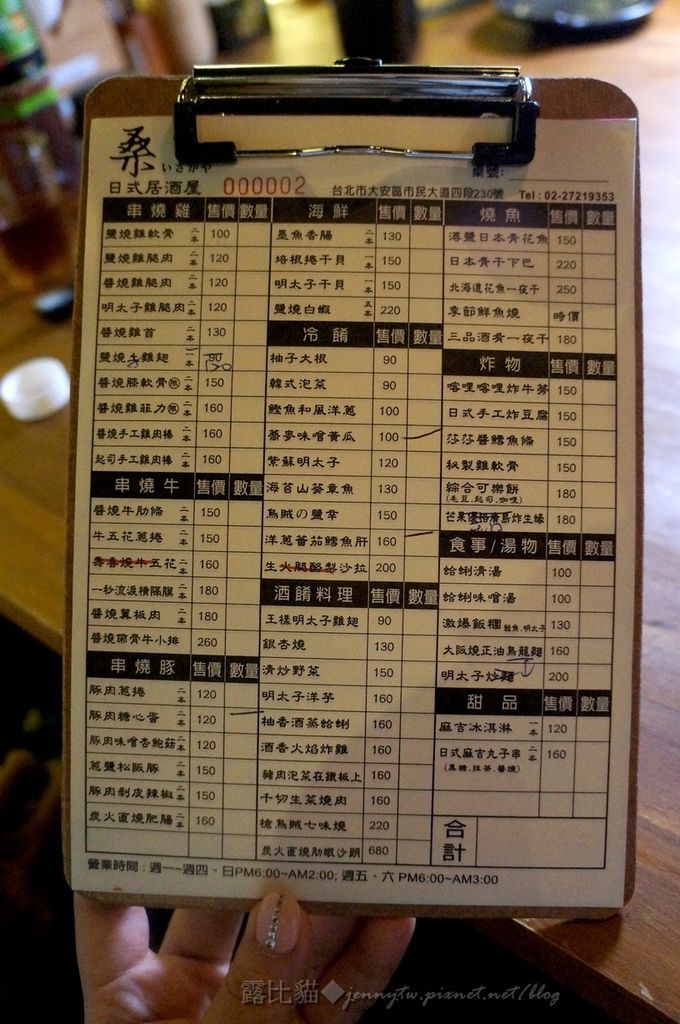 桑 いざかや
桌號:
日式居酒屋 000002 台北市大安區市民大道四段230號 Tel:02-27219353
串燒雞 售價 數量
鹽燒雞軟骨 二本 100
鹽燒雞腿肉 二本 120
醬燒雞腿肉 二本 120
明太子雞腿肉 二本 120
醬燒雞首 二本 130
鹽燒土雞翅
醬燒膝軟骨(限) 二本 150
醬燒雞菲力(限) 二本 160
醬燒手工雞肉棒 二本 160
起司手工雞肉棒 二本 160
串燒牛 售價 數量
醬燒牛肋條 二本 150
牛五花蔥捲 二本 150
壽喜燒牛五花 二本 160
一秒流淚橫隔膜 二本 180
醬燒翼板肉 二本 180
醬燒帶骨牛小排 260
串燒豚 售價 數量
豚肉蔥捲 二本 120
豚肉糖心蛋 二本 120
豚肉味噌杏鮑菇 二本 120
蔥鹽松阪豚 二本 150
豚肉剝皮辣椒 二本 150
炭火直燒肥腸 二本 160
海鮮 售價 數量
墨魚香腸 二本 130
培根捲干貝 一本 150
明太子干貝 一本 150
鹽燒白蝦 五本 220
冷餚 售價 數量
柚子大根 90
韓式泡菜 90
鰹魚和風洋蔥 100
蕎麥味噌黃瓜 100
紫蘇明太子 120
海苔山葵章魚 130
烏賊の鹽辛 150
洋蔥蕃茄鱈魚肝 160
生火腿酪梨沙拉 200
酒餚料理 售價 數量
王樣明太子雞翅 90
銀杏燒 130
清炒野菜 150
明太子洋芋 160
柚香酒蒸蛤蜊 160
酒香火焰炸雞 160
豬肉泡菜在鐵板上 160
千切生菜燒肉 160
槍烏賊七味燒 220
炭火直燒肋眼沙朗 680
燒魚 售價 數量
薄鹽日本青花魚 150
日本青干下巴 220
北海道花魚一夜干 250
季節鮮魚燒 時價
三品酒肴一夜干 180
炸物 售價 數量
喀哩喀哩炸牛蒡 150
日式手工炸豆腐 150
莎莎醬鱈魚條 150
秘製雞軟骨 150
綜合可樂餅 180
(毛豆.起司.咖哩)
芒果炸生蠔 180
食事/湯物 售價 數量
蛤蜊清湯 100
蛤蜊味噌湯 100
激爆飯糰 鮭魚.明太子 130
大阪燒正油烏龍麵 160
明太子炒麵 200
甜品 售價 數量
麻吉冰淇淋 一本 120
日式麻吉丸子串 二本 160
(黑糖.抹茶.醬燒)
合計
營業時間:週一~週四、日PM6:00~AM2:00; 週五、六 PM6:00~AM3:00
露比貓◆jennytw.pixnet.net/blog